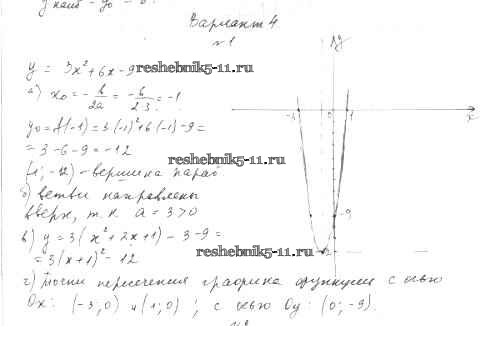 Вариант 4
№1
y = 3x² + 6x - 9
reshebnik5-11.ru
а) x₀ = -b/2a = -6/2·3 = -1
y₀ = f(-1) = 3·(-1)² + 6·(-1) - 9 =
= 3 - 6 - 9 = -12
reshebnik5-11.ru
(-1; -12) - вершина параб
б) ветви направлены
вверх, т.к a = 3 > 0
в) y = 3(x² + 2x + 1) - 3 - 9 =
= 3(x+1)² - 12
reshebnik5-11.ru
г) точки пересечения графика функции с осью
Ox: (-3; 0) и (1; 0); с осью Oy: (0; -9).
y
x
1
-9